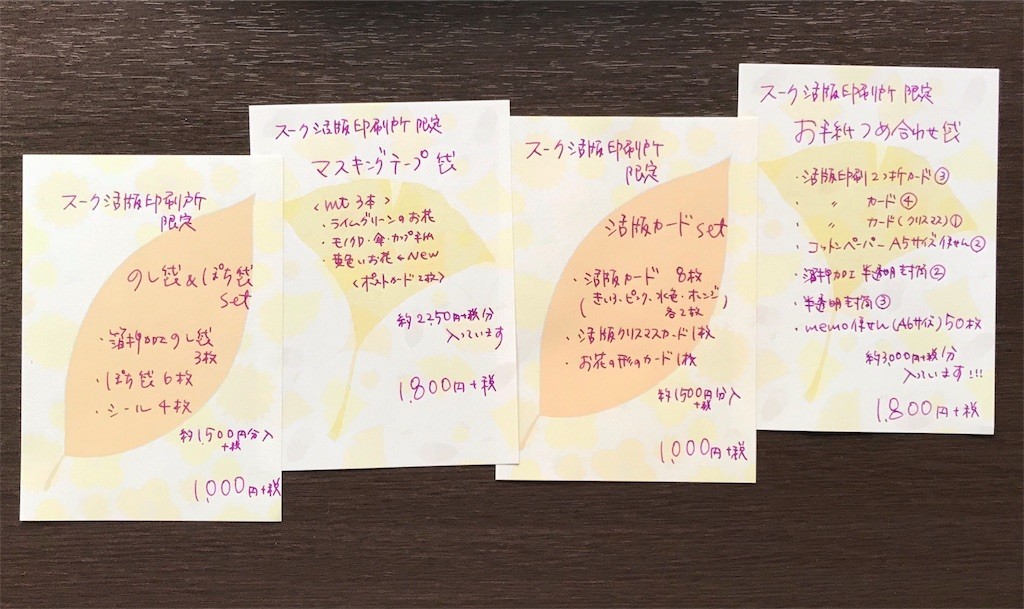 スーク活版印刷所
限定
のし袋&ぽち袋
set
・箔押加工のし袋
3枚
・ぽち袋6枚
・シール4枚
約1,500円分入
+税
1,000円+税
スーク活版印刷所 限定
マスキングテープ袋
<mt 3本>
・ライムグリーンのお花
・モノクロ・傘・カップ柄
・黄色いお花←New
<ポストカード2枚>
約2250円+税分
入っています
1,800円+税
スーク活版印刷所
限定
活版カードset
・活版カード 8枚
(きいろ・ピンク・水色・オレンジ)
各2枚
・活版クリスマスカード1枚
・お花の形のカード1枚
約1500円分入
+税
1,000円+税
スーク活版印刷所 限定
お手紙つめ合わせ袋
・活版印刷2つ折カード③
・ 〃 カード④
・ 〃 カード(クリスマス)①
・コットンペーパーA5サイズ便せん②
・箔押加工半透明封筒②
・半透明封筒③
・memo便せん(A6サイズ)50枚
約3,000円+税分
入っています!!!
1,800円+税